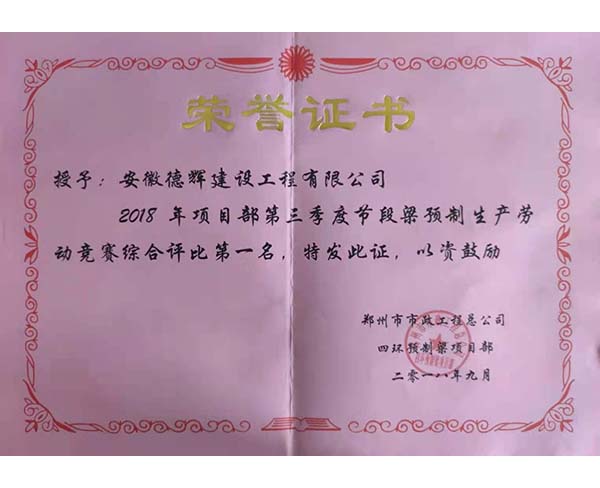 荣誉证书
授予：安徽德辉建设工程有限公司
2018 年项目部第三季度节段梁预制生产劳
动竞赛综合评比第一名，特发此证，以资鼓励
郑州市市政工程总公司
四环预制梁项目部
二零一八年九月